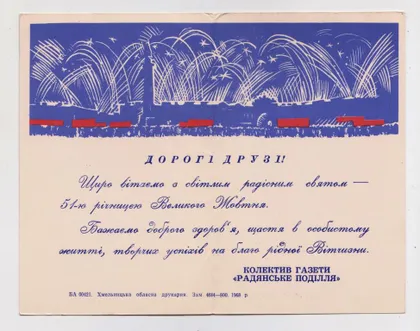 ДОРОГІ ДРУЗІ!
Щиро вітаємо з світлим радісним святом —
51-ю річницею Великого Жовтня.
Бажаємо доброго здоров'я, щастя в особистому
житті, творчих успіхів на благо рідної Вітчизни.
КОЛЕКТИВ ГАЗЕТИ
«РАДЯНСЬКЕ ПОДІЛЛЯ»
Хмельницька обласна друкарня. Зам 1968 р